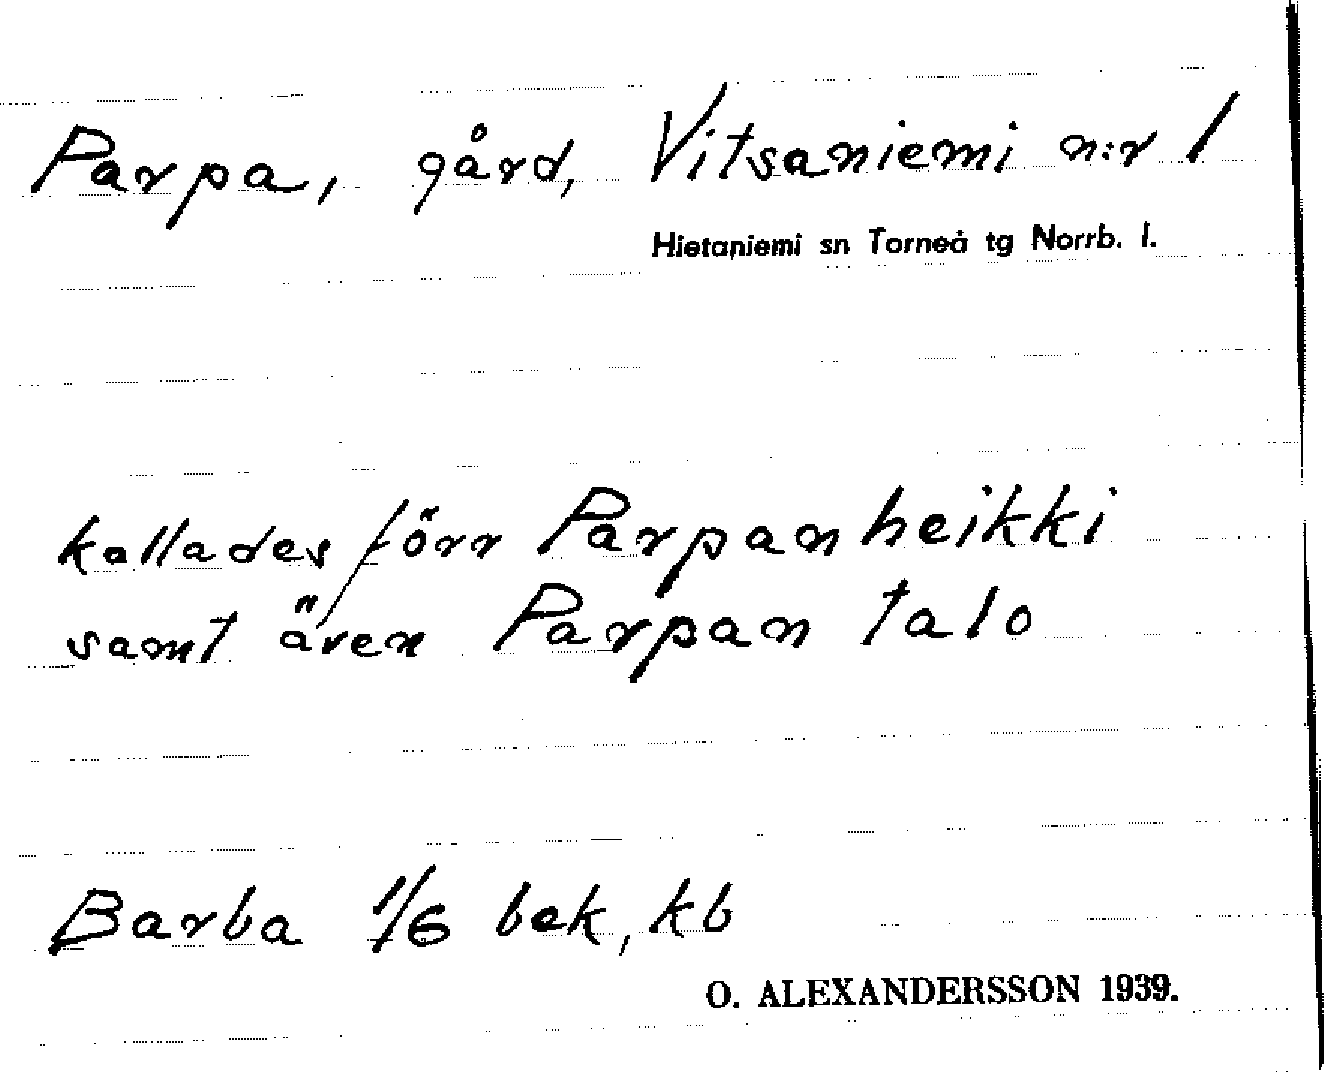 Parpa, gård, Vitsaniemi n:r 1
Hietaniemi sn Torneå tg Norrb. l.
kallades förr Parpanheikki
samt även Parpan talo
Barba 1/6 bek, kb
O. ALEXANDERSSON 1939.